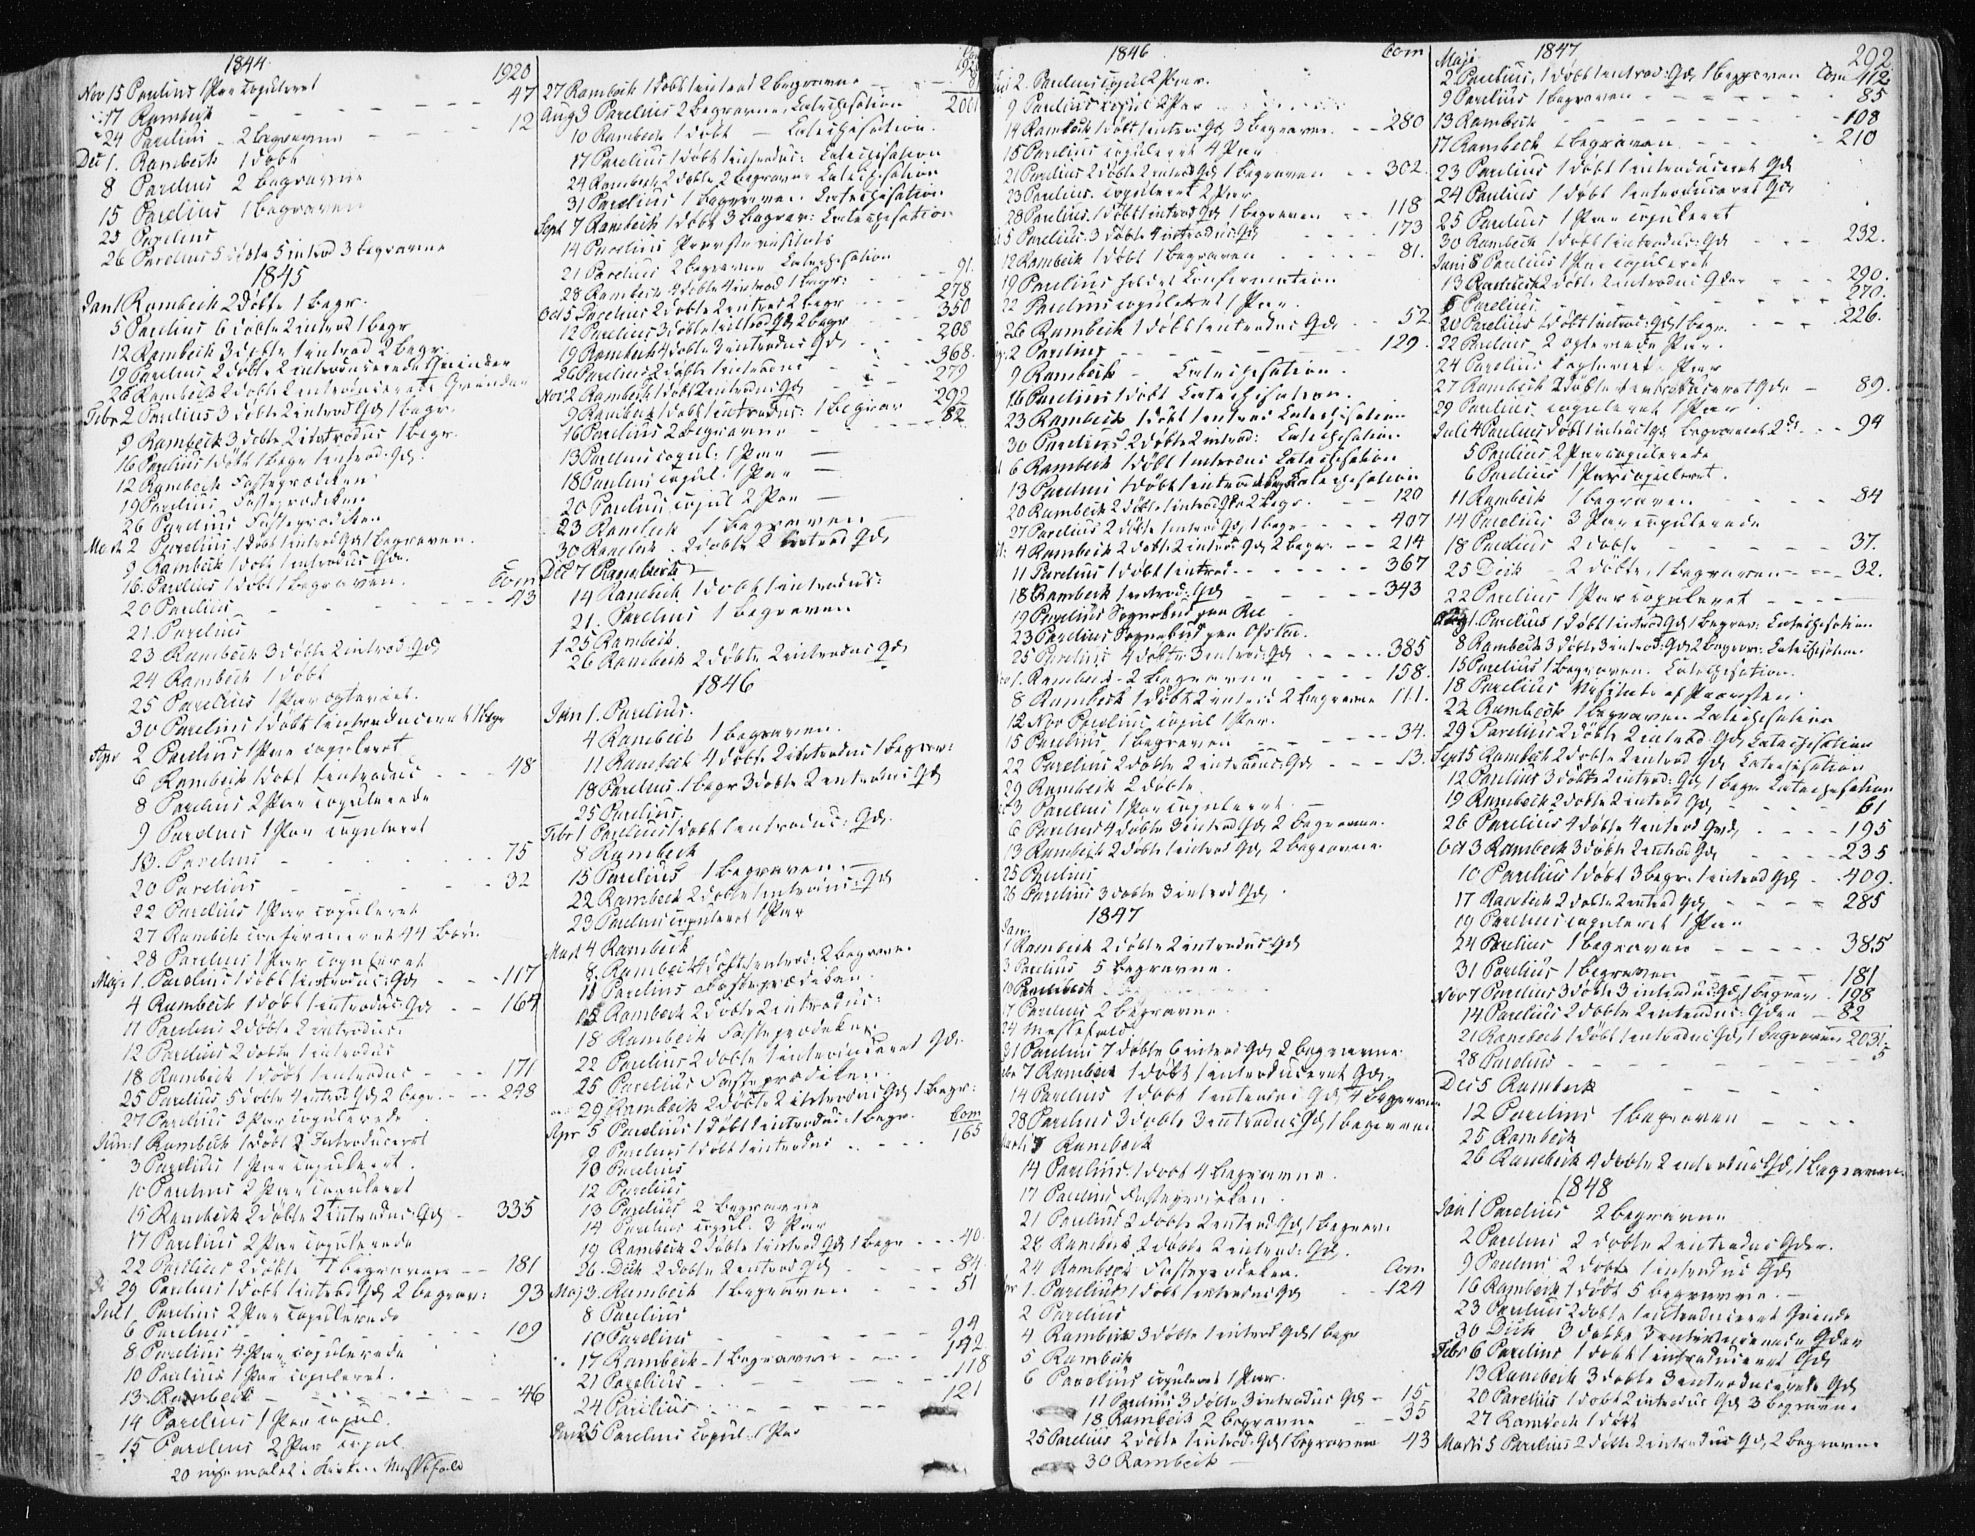 1844
1920
Nov 15 Parelius 1 Par copuleret
17 Rambech - - - - 47
24 Parelius - 2 begravne - - 12
Dec 1. Rambech 1 døbt
8 Parelius 2 begravne
15 Parelius 1 begraven
25 Parelius
26 Parelius 5 døbte 5 introd 3 begravne
1845
Jan 1 Rambech 2 døbte 1 begr.
5 Parelius 6 døbte 2 introd 1 begr
12 Rambech 3 døbte 1 introd 2 begr.
19 Parelius 2 døbte 2 introducerede Qvinder
26 Rambech 2 døbte 2 introducerede Qvinder
Febr 2 Parelius 3 døbte 2 introd Qd 1 begr.
9 Rambech 3 døbte 2 introduc 1 begr.
16 Parelius 1 døbt 1 begr 1 introd: Qd.
12 Rambech Fasteprædiken
19 Parelius Fasteprædiken
26 Parelius Fasteprædiken
Marts 2 Parelius 1 døbt 1 introd Qd 1 begraven.
9 Rambech 1 døbt 1 introduc Qde.
16. Parelius 1 døbt 1 begraven. Com
20 Parelius - - - - 43
21. Parelius
23 Rambech 3 døbte 2 introd: Qd
24 Rambech 1 døbt
25 Parelius 1 Par copuleret.
30 Parelius 1 døbt 1 introduceret 1 begr
Apr 2 Parelius 1 Par copuleret
6 Rambech 1 døbt 1 introduc - - - 48
8 Parelius 2 Par copulerede
9 Parelius 1 Par copuleret
13. Parelius - - - - 75
20 Parelius - - - - 32
22 Parelius 1 Par copuleret
27 Rambech confirmeret 44 Børn
28 Parelius 1 Par copuleret
Maj 1. Parelius 1 døbt 1 introduc: Qd - - 117
4 Rambech 1 døbt 1 introduc: Qd - - 164
11 Parelius 2 døbte 2 introduc.
12 Parelius 2 døbte 1 introduc
18 Rambech 1 døbt 1 introduc - - - 171
25 Parelius 5 døbte 4 introd Qd 2 begr. - - 248
27 Parelius 3 Par copulerede
Juni 1 Rambech 1 døbt 2 Introduceret
3 Parelius 1 Par copuleret.
10 Parelius 2 Par copuleret
15 Rambech 2 døbte 2 introduc: Qd - 335
17 Parelius 2 Par copulerede
22 Parelius 2 døbte 1 begraven - - 181
29 Parelius 1 døbt 1 introd Qd 2 begrav: 93
Juli 1 Parelius 2 Par copulerede
6 Parelius - - - - 109
8 Parelius 4 Par copulerede
10 Parelius 1 Par copuleret.
13 Rambech - - - - 46
14 Parelius 1 Par copul.
15 Parelius 2 Par copul
20 Kirken Messefald
27 Rambech 1 døbt 1 introd 2 begravne
Aug 3 Parelius 2 begravne. Catechisation
10 Rambech 1 døbt - Catechisation.
17 Parelius 1 døbt 1 introduc: Catechisation
24 Rambech 2 døbte 2 begravne Catechisation
31 Parelius 1 begraven Catechisation
Sept 7 Rambech 1 døbt 3 begrav: Catechisation
14 Parelius Provste visitats
21 Parelius 2 begravne Catechisation
28 Rambech 4 døbte 4 introd 1 begr: - - 91.
Oct 5 Parelius 2 døbte 2 introd 2 begr - - 278
12 Parelius 3 døbte 1 introd Qd 2 begr - - 350
19 Rambech 4 døbte 3 introduc Qd - - 208
26 Parelius 2 døbte 1 introduc - - 368.
Nov 2 Rambech 1 døbt 2 introduc: Qd - - 279
9 Rambech 1 døbt 1 introduc: 1 begrav - 292
16 Parelius 2 begravne - - - 82
13 Parelius copul: 1 Par
18 Parelius copul. 1 Par
20 Parelius copul 2 Par
23 Rambech 1 begraven
30 Rambech 2 døbte 2 introd Qd
Dec 7 Rambech
14 Rambech 1 døbt 1 introduc:
21. Parelius 1 begraven
25 Rambech
26 Rambech 2 døbte 2 introduc Qd
1846
Jan 1. Parelius.
4 Rambech 1 begraven.
11 Rambech 4 døbte 2 introduc 1 begrav:
18 Parelius. 1 begr 3 døbte 2 introduc Qd
25 Parelius.
Febr 1 Parelius 1 døbt 1 introduc: Qd.
8 Rambech
15 Parelius 1 begraven
22 Rambech 2 døbte 1 introduc: Qd
23 Parelius copuleret 1 Par
Mart 4 Rambech
8. Rambech 4 døbte introd: 2 begravne
11 Parelius Fasteprædiken.
15 Rambech 2 døbte 2 introduc:
18 Rambech Fasteprædiken.
22 Parelius 2 døbte 1 introduceret Qd.
25 Parelius Fasteprædiken.
29 Rambech 2 døbte 2 introduc Qd 1 begr:
Com
Apr 5 Parelius 1 døbt 1 introduc 1 begr. 165
9 Parelius 1 døbt 1 introduc
10 Parelius
12 Parelius
13 Parelius 2 begravne
14 Parelius copul. 3 Par
19 Rambech 2 døbte 1 introd Qd 1 begr - - 40.
26. Dick 2 døbte 2 introd Qd - - 84.
Maj 3. Rambech 1 begraven - - 51
8 Parelius
10 Parelius - - - 94
17 Rambech - 1 begraven - - - 142
21 Parelius - - - - 118
24 Parelius - - - - 121
Juni 5 Parelius copul: 1 Par
1846 Com
2. Parelius copul 2 Par.
9 Parelius copul 2 Par
14 Rambech 1 døbt 1 introd Qd 3 begravne. - - 280
15 Parelius copuleret 4 Par
21 Parelius 2 døbte 2 introd Qd 1 begraven - - 302.
23 Parelius. copuleret 2 Par
28 Parelius. 1 døbt 1 introd Qd 1 begraven - - 118
5 Parelius. 3 døbte 4 introduc: Qd - - - 173
12 Rambech 1 døbt 1 begraven - - - 81.
19 Parelius holdt Confirmation
22 Parelius copuleret 1 Par
26 Rambech 1 døbt 1 introduc Qd. - 52
2 Parelius - - - - 129.
9 Rambech - Catechisation.
16 Parelius 1 døbt Catechisation.
23 Rambech 1 døbt 1 introd Catechisation
30 Parelius 2 døbte 2 introd: Catechisation
6 Rambech 1 døbt 1 introduc Catechisation
13 Parelius 1 døbt 1 introd 1 begr Catechisation
20 Rambech 2 døbte 1 introd Qd 2 begr. - - 120
27 Parelius 2 døbte 1 introd Qd 1 begr - - - 407
4 Rambech 2 døbte 2 introd: Qd 2 begr. - - 214
11 Parelius 1 døbt 1 introd - - - - 367
18 Rambech 1 introd: Qd - - - 343
19 Parelius Sognebud paa Ree
23 Parelius Sognebud paa Opstu.
25 Parelius 4 døbte 3 introd: Qd - - - - 385
1. Rambech - 2 begravne - - - 158.
8 Rambech 1 døbt 2 introd 2 begravne 111.
12 Nov Parelius copul 1 Par.
15 Parelius 1 begraven - - - 34.
22 Parelius 2 døbte 2 introduc: Qd - - - 13.
29 Rambech 2 døbte
3 Parelius 1 Par copuleret.
6 Parelius 4 døbte 3 introd Qd 2 begravne.
13 Rambech 2 døbte 1 introd Qd 2 begravne.
25 Parelius
26 Parelius 3 døbte 3 introd Qd.
1847
Jan:
1 Rambech 2 døbte 2 introduc: Qd
3 Parelius 5 begravne.
10 Rambech
17 Parelius 2 begravne.
24 Messefald.
31 Parelius 7 døbte 6 introd Qd 2 begravne
7 Rambech 1 døbt 1 introduceret Qd.
14 Parelius 1 døbt 1 introduc Qd 4 begravne
28 Parelius 3 døbte 3 introduc Qd 1 begraven
Marts 7 Rambech
14 Parelius. 1 døbt 4 begravne.
17 Parelius Fasteprædiken.
21 Parelius 2 døbte 2 introd Qd 1 begrav:
28 Rambech 2 døbte 2 introd: Qd.
24 Rambech Fasteprædiken. Com
1. Parelius 1 døbt 1 introduc Qd - - 124
2 Parelius
4 Rambech 3 døbte 1 introd Qd 1 begr
5 Rambech
6 Parelius copuleret 1 Par.
11 Parelius 3 døbte 3 introduc Qd - 15
18 Rambech 2 begravne - - 35
25 Parelius 2 døbte 1 introd: Qd 1 begraven 43
30 Rambech
1847 202
Maji
2 Parelius. 1 døbt 1 introd: Qd 1 begraven Com 112
9 Parelius 1 begraven - - - - 85
13 Rambech - - - - 108
17 Rambech 1 begraven - - - 210
23 Parelius 1 døbt 1 introduceret Qd
24 Parelius 1 døbt 1 introduceret Qd
25 Parelius 1 Par copuleret
30 Rambech 1 døbt 1 introduc: Qd - - 232.
Juni 8 Parelius 1 Par copuleret
13 Rambech 2 døbte 2 introduc Qder - - 290.
Parelius - - - - 270.
20 Parelius 1 døbt 1 introd: Qd 1 begr. - - 226.
22 Parelius 2 copulerede Par.
24 Parelius copuleret 1 Par
27 Rambech 2 døbte 1 introduceret Qde - 89.
29 Parelius copuleret 1 Par.
Juli 4 Parelius døbt 1 introd Qd begravet 2 - - 94
5 Parelius 2 Par copulerede
6 Parelius 1 Par copuleret.
11 Rambech 1 begraven - - - 84
14 Parelius 3 Par copulerede
18 Parelius 2 døbte - - - - 37.
25 Dick - 2 døbte, 1 begraven - - - 32.
22 Parelius 1 Par copuleret
Aug 1. Parelius 1 døbt 1 introd Qd 1 begrav: Catechisation
8 Rambech 3 døbte 3 introd: Qd 2 begrav: Catechisation
15 Parelius 1 begraven. Catechisation.
18 Parelius Visitats af Provsten.
22 Rambech 1 begraven Catechisation
29 Parelius 2 døbte 2 introd: Qd Catechisation
Sept 5 Rambech 2 døbte 2 introd Qd Catechisation
12 Parelius 3 døbte 2 introd: Qd 1 begr Catechisation
19 Rambech 2 døbte 2 introd Qd - - - 61
26 Parelius 4 døbte 4 introd Qd - - - 195
Oct 3 Rambech 3 døbte 2 introd Qd - - - 235
10 Parelius 1 døbt 3 begr. 1 introd Qd - 409.
17 Rambech 2 døbte 2 introd Qd - - - 285
19 Parelius copuleret 1 Par
24 Parelius 1 begraven - - - 385
31 Parelius 1 begraven - - - 181
Nov 7 Parelius 3 døbte 3 introduc: Qd 1 begrav. 198
14 Parelius 2 døbte 2 introduc: Qder - 82
21 Rambech 1 døbt 1 introduc Qd 1 begraven 203
28 Parelius - - - - 5
Dec 5 Rambech
12 Parelius 1 begraven - - -
25 Rambech
26 Rambech 4 døbte 2 introduc Qd, 1 begraven
1848
Jan 1 Parelius 2 begravne
2 Parelius 2 døbte 2 introduc Qder.
9 Parelius 2 døbte 1 introduc Qd
16 Rambech 1 døbt 5 begravne.
23 Parelius 2 døbte 1 introduceret Qvinde
30 Dick 3 døbte 3 introducerede Qder
Febr 6 Parelius 1 døbt 1 introduceret Qd
13 Rambech 3 døbte 3 introducerede Qd
20 Parelius 1 døbt 2 introduc Qd 3 begravne
27 Rambech 1 døbt
Marts 5 Parelius 2 døbte 2 introduc Qd, 2 begravne